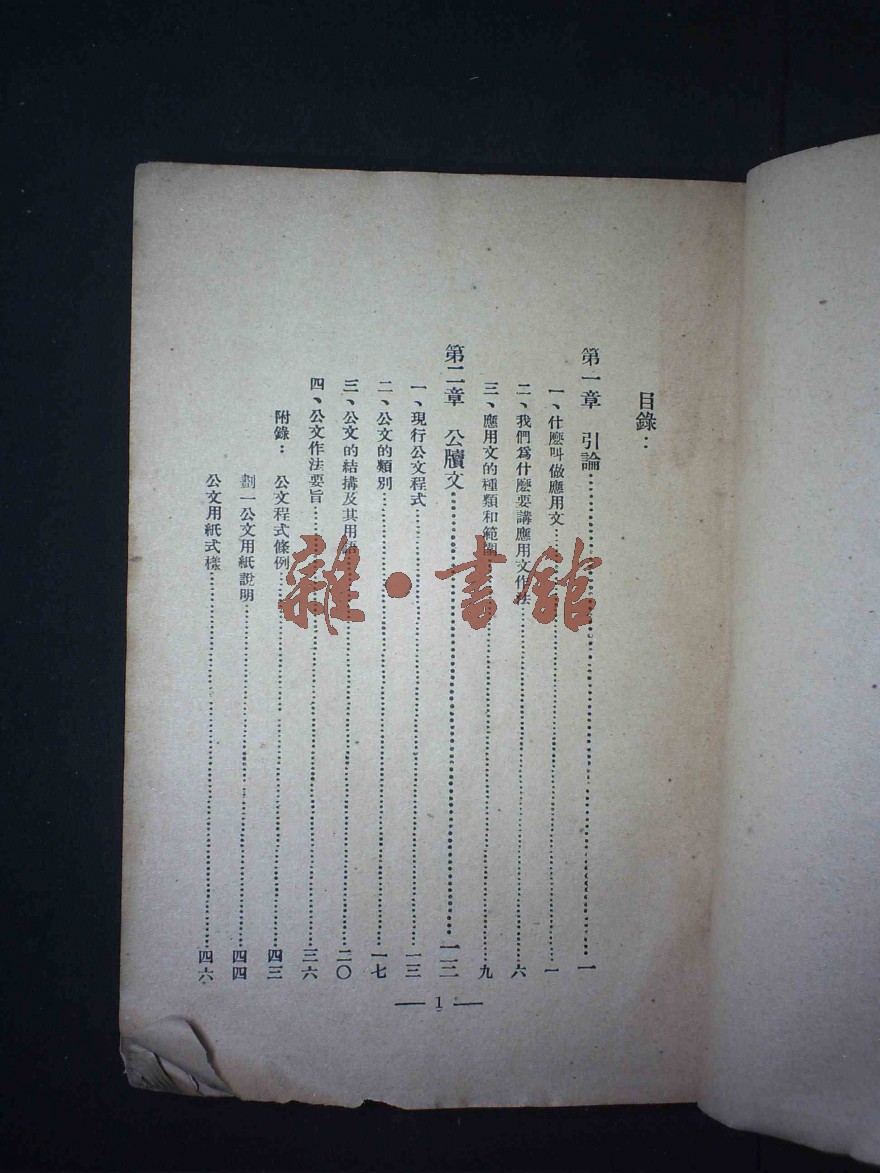 目錄：
第一章　引論……一
一、什麼叫做應用文……一
二、我們爲什麼要講應用文作法……六
三、應用文的種類和範圍……九
第二章　公牘文……一二
一、現行公文程式……一三
二、公文的類別……一七
三、公文的結構及其用語……二〇
四、公文作法要旨……三六
附錄：　公文程式條例……四三
劃一公文用紙說明……四四
公文用紙式樣……四六
— 1 —
雜·書館